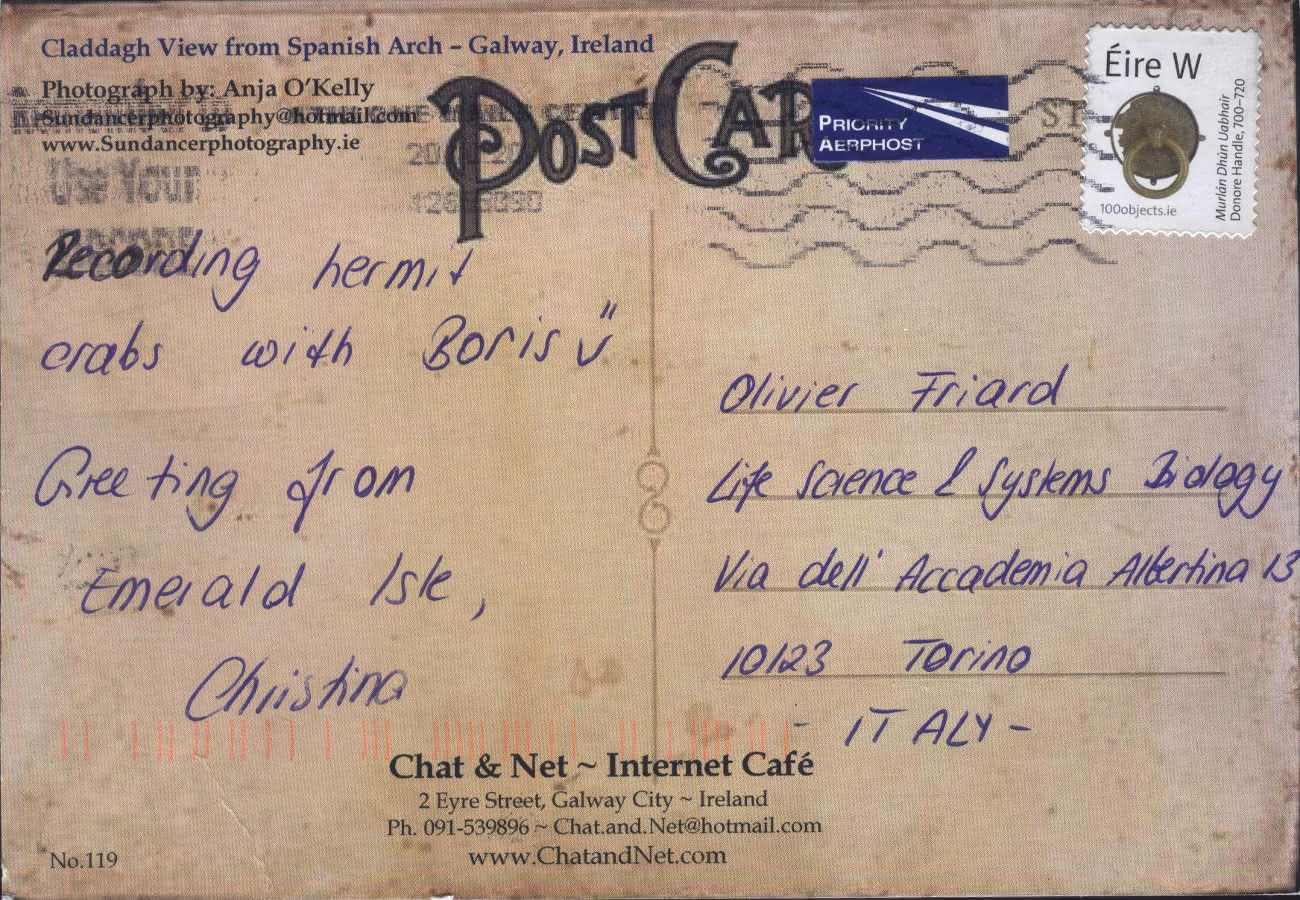 Claddagh View from Spanish Arch – Galway, Ireland
Photograph by: Anja O'Kelly
Sundancerphotography@hotmail.com
www.Sundancerphotography.ie
POST CAR
PRIORITY
AERPHOST
Éire W
Murlán Dhún Uabhair
Donore Handle, 700–720
100objects.ie
Use Your
Recording hermit
crabs with Boris
Greeting from
Emerald Isle,
Christina
Olivier Friard
Life Science & Systems Biology
Via dell' Accademia Albertina 13
10123 Torino
- ITALY -
Chat & Net ~ Internet Café
2 Eyre Street, Galway City ~ Ireland
Ph. 091-539896 ~ Chat.and.Net@hotmail.com
www.ChatandNet.com
No.119